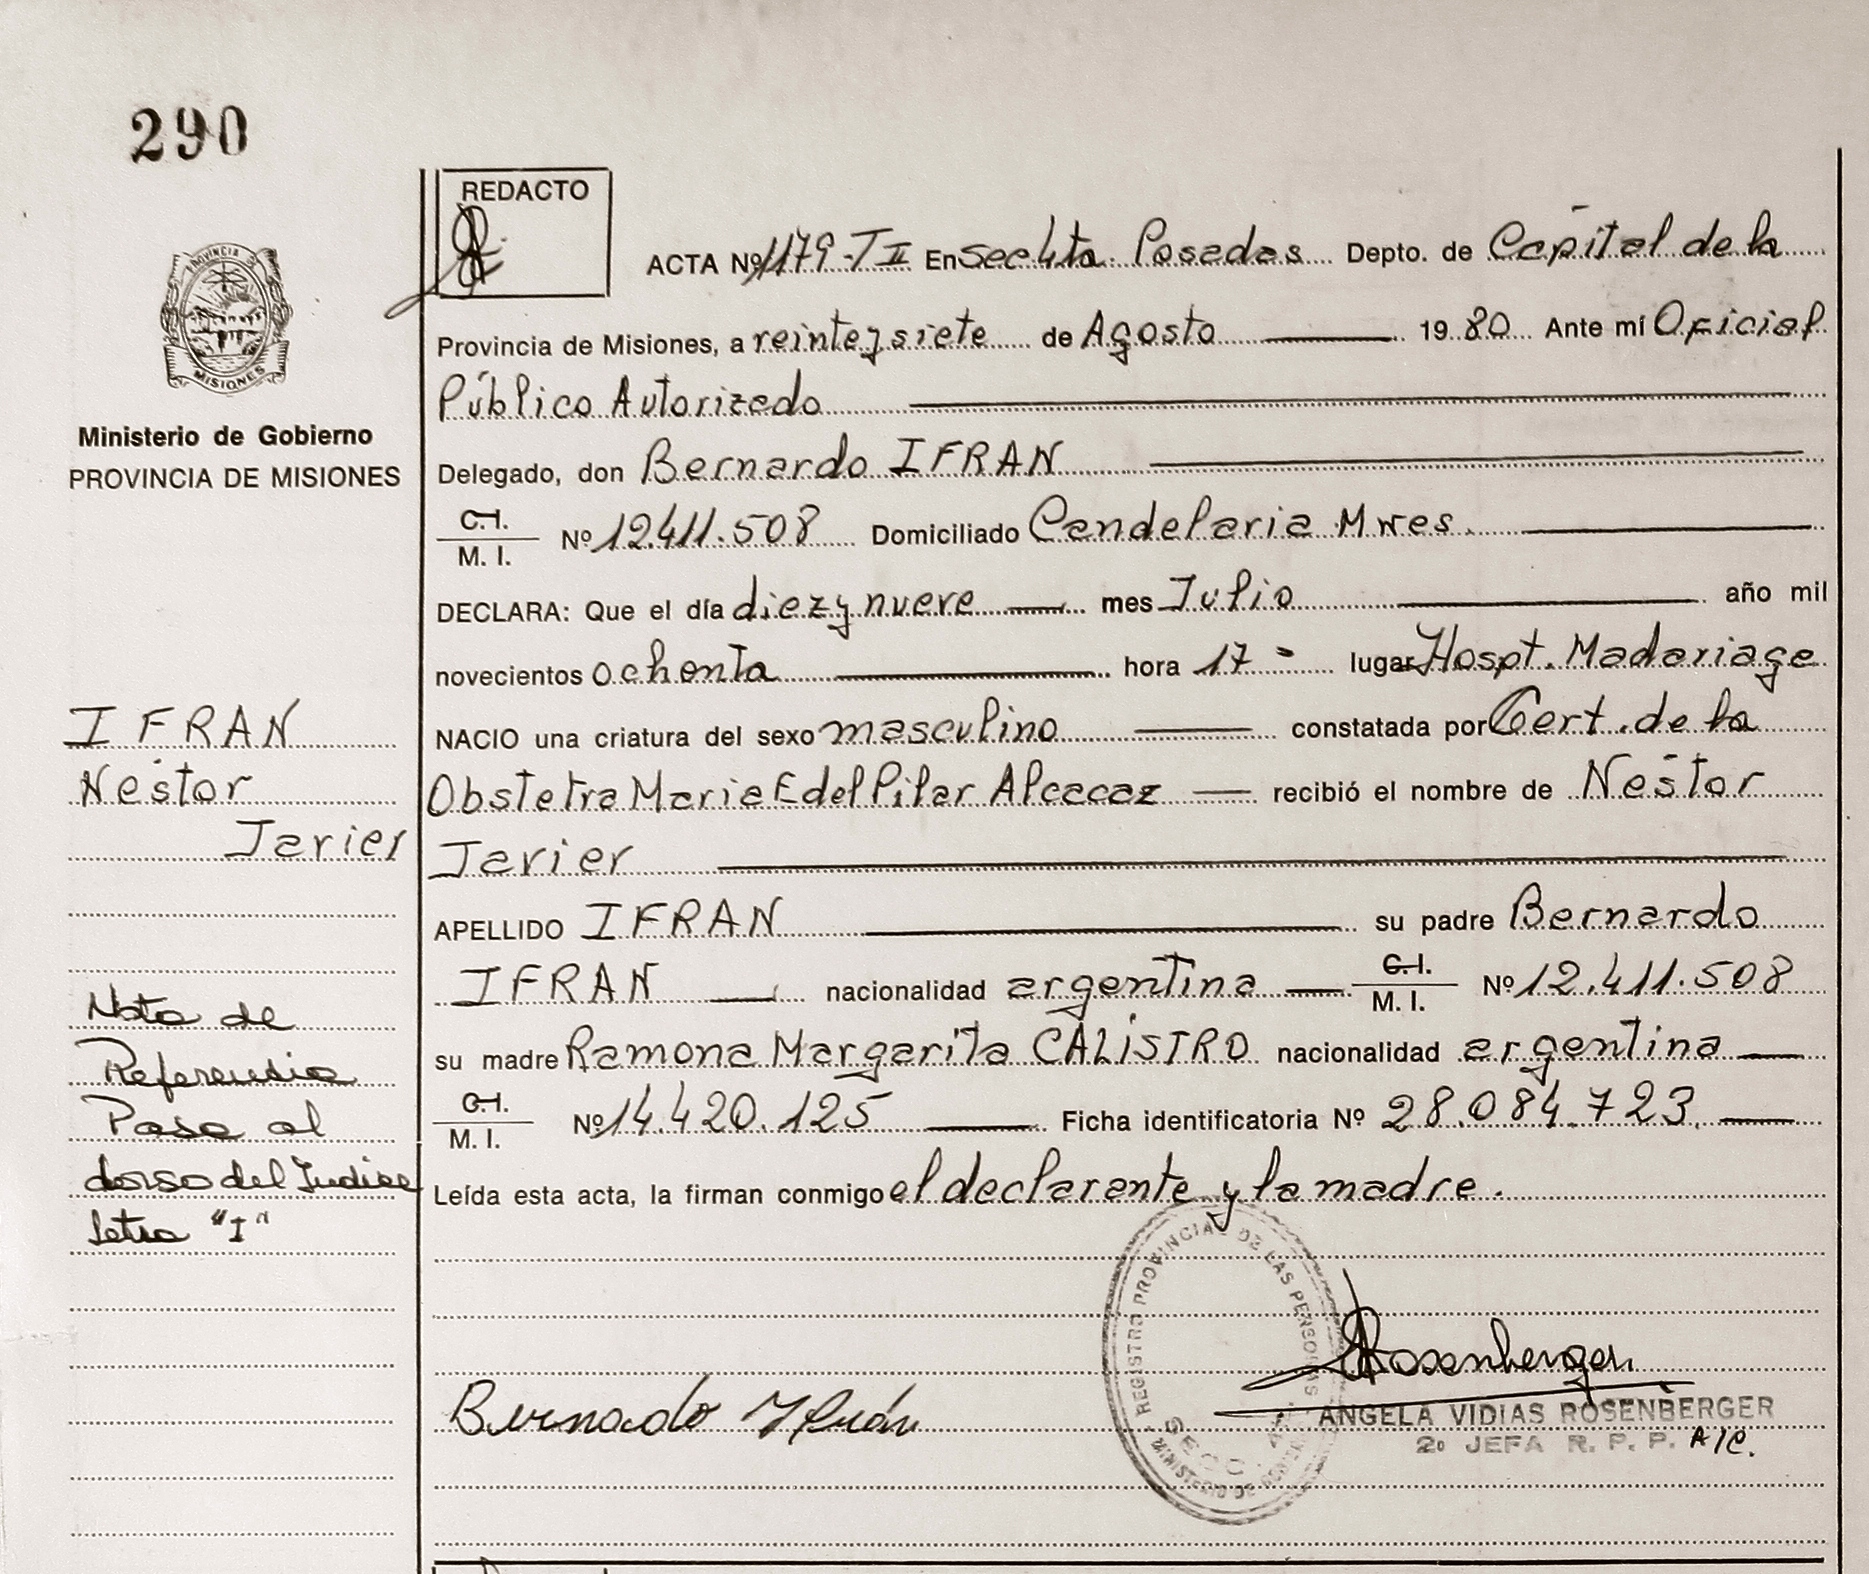 290
REDACTO
ACTA Nº 1179-T II En Secc 4ta. Posadas Depto. de Capital de la
Provincia de Misiones, a veinteysiete de Agosto 1980 Ante mí Oficial
Público Autorizado
Delegado, don Bernardo IFRAN
C.I. / M. I. Nº 12.411.508 Domiciliado Candelaria Mnes.
DECLARA: Que el día diez y nueve mes Julio año mil
novecientos ochenta hora 17 lugar Hospt. Madariaga
NACIO una criatura del sexo masculino constatada por Cert. de la
Obstetra Maria E del Pilar Alcaraz recibió el nombre de Nestor
Javier
APELLIDO IFRAN su padre Bernardo
IFRAN nacionalidad argentina C.I. / M. I. Nº 12.411.508
su madre Ramona Margarita CALISTRO nacionalidad argentina
C.I. / M. I. Nº 14.420.125 Ficha identificatoria Nº 28.084.723
Leída esta acta, la firman conmigo el declarante y la madre.
PROVINCIA DE
MISIONES
Ministerio de Gobierno
PROVINCIA DE MISIONES
IFRAN
Nestor
Javier
Nota de
Referencia
Pasa al
dorso del Indice
letra "I"
REGISTRO PROVINCIAL DE LAS PERSONAS
MINISTERIO DE
SECC. 4
Bernardo Ifrán
Rosenberger
ANGELA VIDIAS ROSENBERGER
2º JEFA R. P. P. A/C.